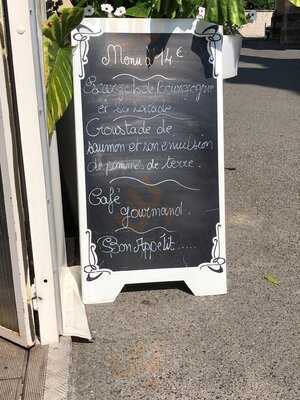 Menu à 14€
Escargots de bourgogne
et sa salade
Croustade de
saumon et son émulsion
de pommes de terre.
Café
gourmand.
Bon Appétit.....